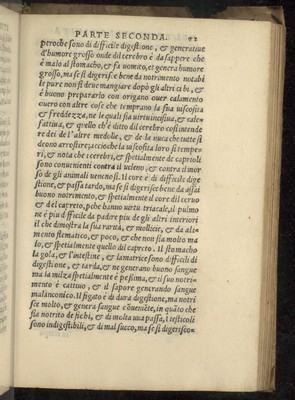 PARTE SECONDA. 92
peroche sono di difficile digestione, & generatiue
d'humore grosso onde dil cerebro è da sappere che
è malo al stomacho, & fa uomito, et genera humore
grosso, ma se si digerisce bene da notrimento notabi
le pure non si deue mangiare dopò gli altri cibi, &
è buono prepararlo con origano ouer calamento
ouero con altre cose che temprano la sua uiscosità
& freddezza, ne le quali sia uirtu incisiua, & cale-
fattiua, & quello ch'è ditto dil cerebro cosi intende
re dei de l'altre medolle, & de la nuca che tutte si
deono arrostire, acccioche la uiscosita loro si tempe-
ri, & nota che i cerebri, & spetialmente de caprioli
sono conuenienti contra il ueleno, & contra il mor
so de gli animali uenenosi. Il core è di difficile dige
stione, & passa tardo, ma se si digerisce bene da assai
buono notrimento, & spetialmente il core dil ceruo
& del capreto, pche hanno uirtu tiriacale, il pulmo
ne è piu difficile da padire piu de gli altri interiori
il che dimostra la sua rarità, & mollicie, & da ali-
mento flematico, & poco, & che non sia molto ma
lo, & spetialmente quello dil capreto. Il stomacho
la gola, & l'intestine, & la matrice sono difficili di
digestione, & tarda, & ne generano buono sangue
ma la milza spetialmente è pessima, & il suo notri-
mento è cattiuo, & il sapore generando sangue
malanconico. Il figato è di dura digestione, ma notri
sce molto, & genera sangue cõueniẽte, in quãto che
sia notrito de fichi, & di molta uua passa, i testicoli
sono indigestibili, & di mal succo, ma se si digerisco-